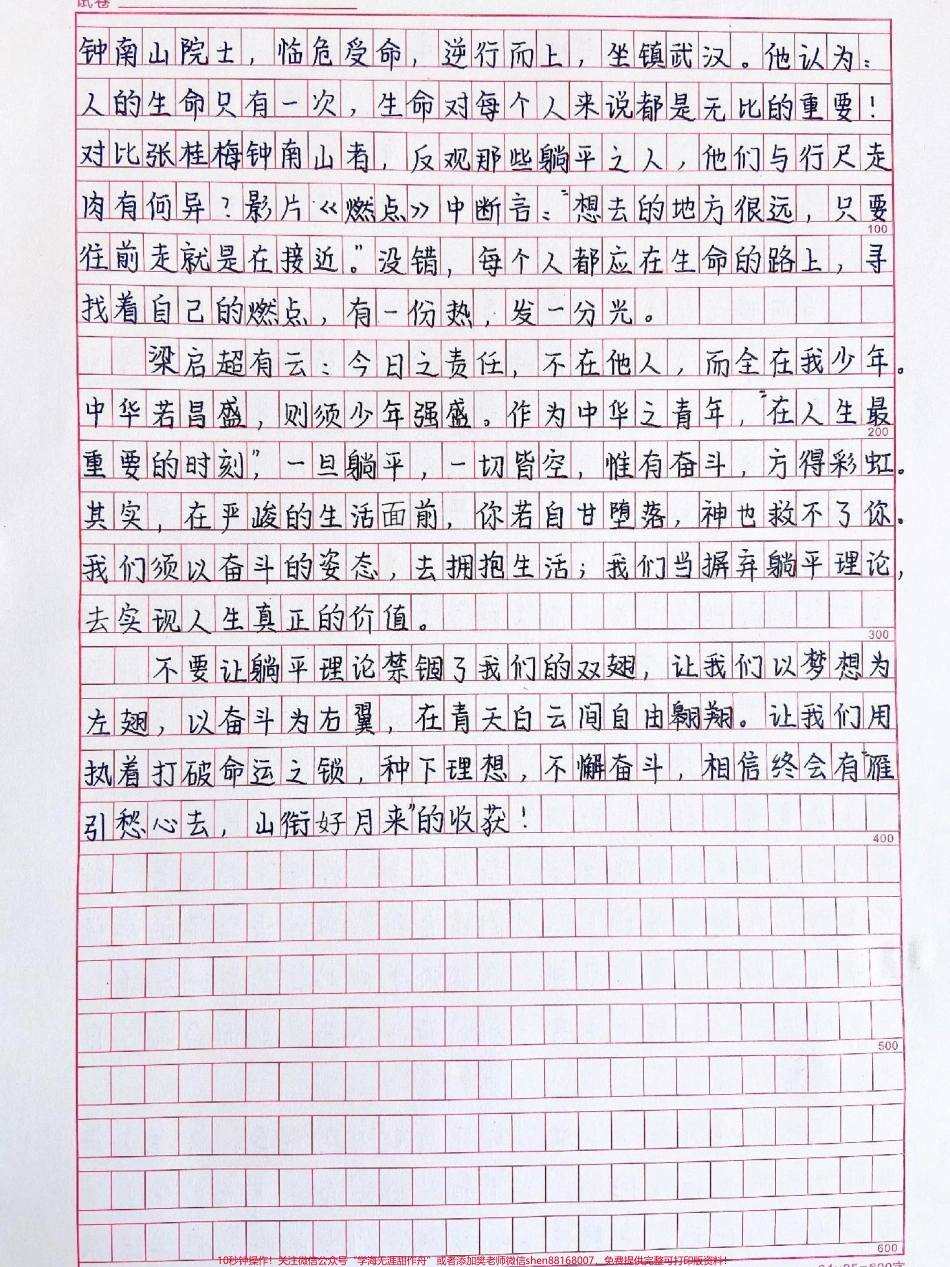 试卷
钟南山院士，临危受命，逆行而上，坐镇武汉。他认为：
人的生命只有一次，生命对每个人来说都是无比的重要！
对比张桂梅钟南山者，反观那些躺平之人，他们与行尸走
肉有何异？影片《燃点》中断言：“想去的地方很远，只要
100
往前走就是在接近。”没错，每个人都应在生命的路上，寻
找着自己的燃点，有一份热，发一分光。
梁启超有云：今日之责任，不在他人，而全在我少年。
中华若昌盛，则须少年强盛。作为中华之青年，“在人生最
200
重要的时刻”，一旦躺平，一切皆空，惟有奋斗，方得彩虹。
其实，在严峻的生活面前，你若自甘堕落，神也救不了你。
我们须以奋斗的姿态，去拥抱生活；我们当摒弃躺平理论，
去实现人生真正的价值。
300
不要让躺平理论禁锢了我们的双翅，让我们以梦想为
左翅，以奋斗为右翼，在青天白云间自由翱翔。让我们用
执着打破命运之锁，种下理想，不懈奋斗，相信终会有“雁
引愁心去，山衔好月来”的收获！
400
500
600
10秒钟操作！关注微信公众号“学海无涯甜作舟”或者添加樊老师微信shen88168007，免费提供完整可打印版资料！
24×25=600字